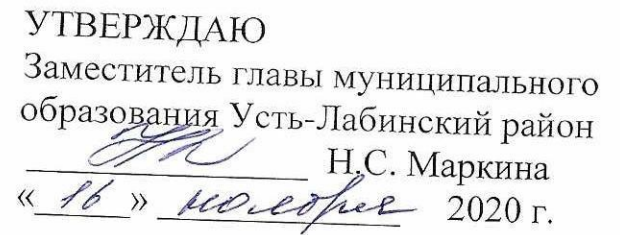 УТВЕРЖДАЮ
Заместитель главы муниципального
образования Усть-Лабинский район
Н.С. Маркина
«16» ноября 2020 г.